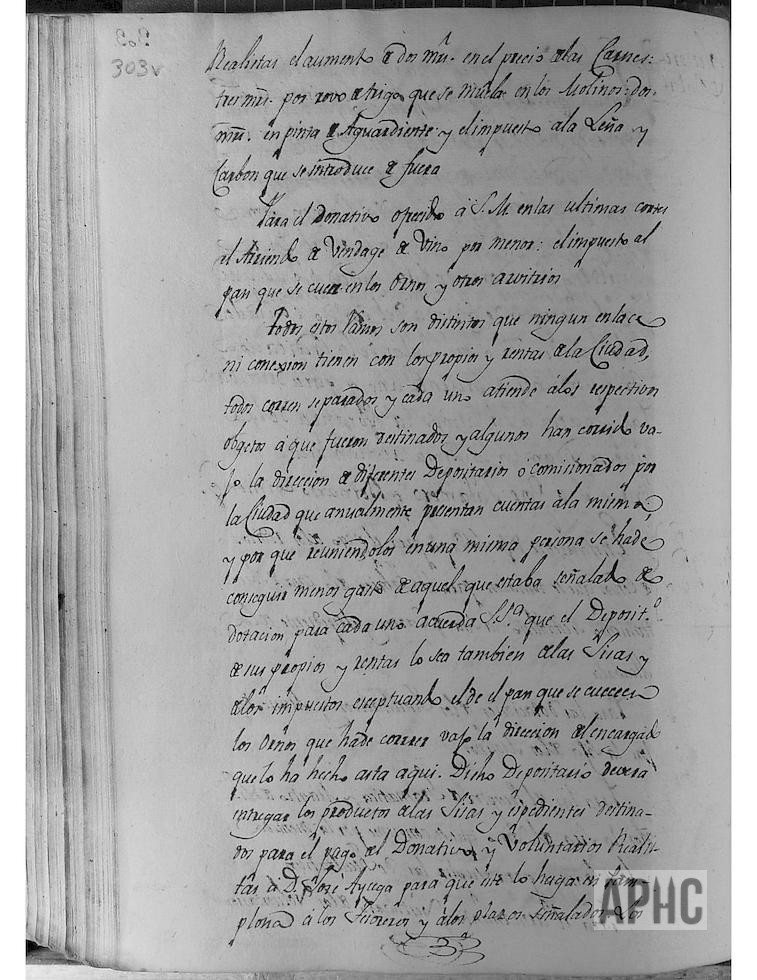 303
303v
Realistas el aumento de dos mrs. en el precio de las Carnes:
tres mrs. por rovo de trigo que se muela en los Molinos: dos
mrs. en pinta de Aguardiente y el impuesto a la Leña y
Carbon que se introduce de fuera
Para el Donativo ofrecido á S.M. en las ultimas cortes
el Arriendo de Vendage de Vino por menor: el impuesto al
pan que se cuece en los Ornos y otros arvitrios
Todos estos Ramos son distintos que ningun enlace
ni conexion tienen con los propios y rentas de la Ciudad,
todos corren separados y cada uno atiende á los respectivos
objetos a que fueron destinados y algunos han corrido va-
jo la direccion de diferentes Depositarios ó comisionados por
la Ciudad que anualmente presentan cuentas á la misma,
y por que reuniendolos en una misma persona se ha de
conseguir menos gasto de aquel que estaba señalado de
dotacion para cada uno acuerda S.Sª que el Deposit.º
de sus propios y rentas lo sea tambien de las Sisas y
de los impuestos esceptuando el de el pan que se cuece en
los Ornos que ha de correr vajo la direccion del encargado
que lo ha hecho asta aqui. Dicho Depositario devera
entregar los productos de las Sisas y espedientes destina-
dos para el pago del Donativo y Voluntarios Realis-
tas a D. Jose Ayega para que este lo haga en Pam-
plona á los Tesoreros y á los plazos señalados. Los
APHC